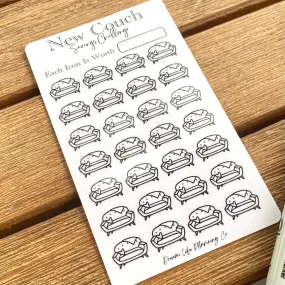 New Couch
Savings Challenge
Each Icon Is Worth
Dream Life Planning Co